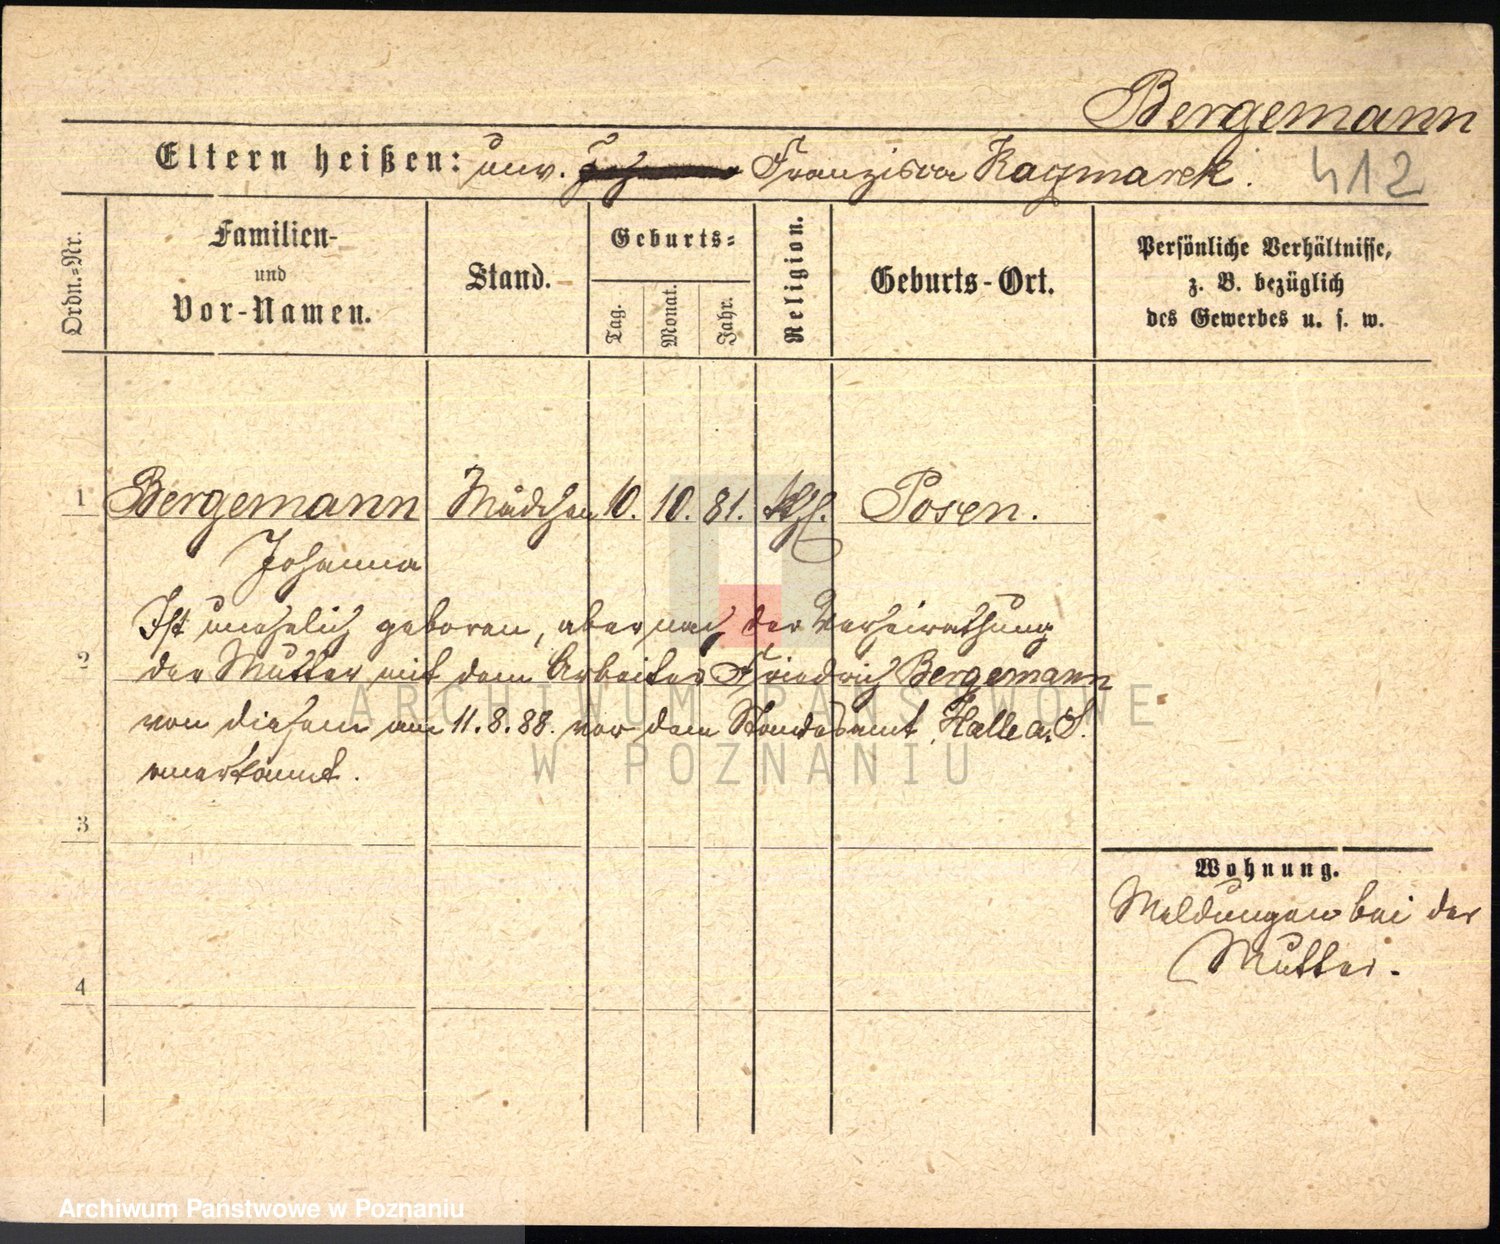 Bergemann
Eltern heißen: unv. Johanna Franziska Kaczmarek. 412
Ordn.-Nr.
Familien-
und
Vor-Namen.
Stand.
Geburts-
Tag.
Monat.
Jahr.
Religion.
Geburts-Ort.
Persönliche Verhältnisse,
z. B. bezüglich
des Gewerbes u. s. w.
1 Bergemann Mädchen 10. 10. 81. kth. Posen.
Johanna
Ist unehelich geboren, aber nach der Verheirathung
2 der Mutter mit dem Arbeiter Friedrich Bergemann
von diesem am 11.8.88. vor dem Standesamt Halle a. S.
anerkannt.
3
Wohnung.
Meldungen bei der
Mutter.
4
ARCHIWUM PAŃSTWOWE
W POZNANIU
Archiwum Państwowe w Poznaniu